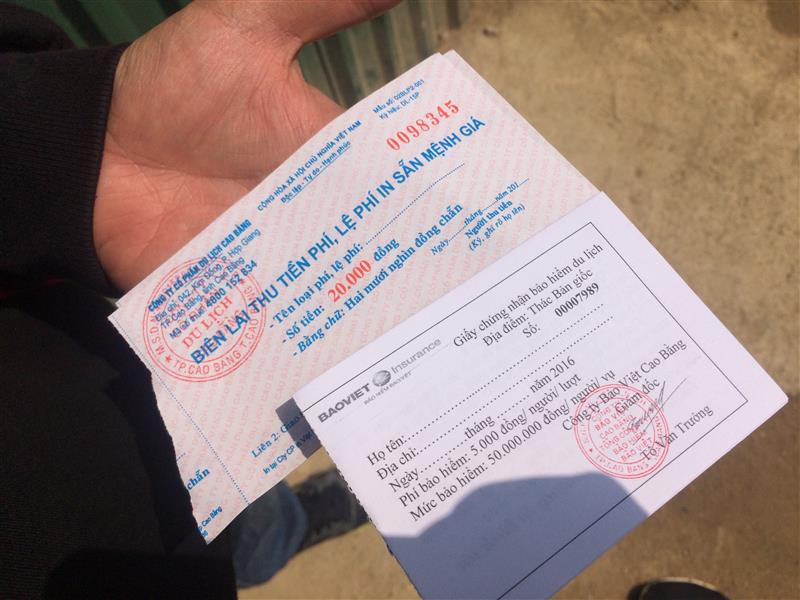 CÔNG TY CỔ PHẦN DU LỊCH CAO BẰNG
Địa chỉ: 042, Kim Đồng, P. Hợp Giang
TP Cao Bằng, tỉnh Cao Bằng
Mã số thuế: 4800 152 834
CỘNG HÒA XÃ HỘI CHỦ NGHĨA VIỆT NAM
Độc lập - Tự do - Hạnh phúc
Mẫu số: 02BLP2-001
Ký hiệu: DL-15P
0098345
BIÊN LAI THU TIỀN PHÍ, LỆ PHÍ IN SẴN MỆNH GIÁ
- Tên loại phí, lệ phí:
- Số tiền: 20.000 đồng
- Bằng chữ: Hai mươi nghìn đồng chẵn
Ngày tháng năm 201
Người thu tiền
(Ký, ghi rõ họ tên)
DU LỊCH
TP.CAO BẰNG T.CAO BẰNG
Liên 2: Giao
In tại Cty CP In Việt
chẵn
Cao Bằng
BAOVIET Insurance
BẢO HIỂM BẢO VIỆT
Giấy chứng nhận bảo hiểm du lịch
Địa điểm: Thác Bản giốc
Số: 00007989
Họ tên:
Địa chỉ:
Ngày tháng năm 2016
Phí bảo hiểm: 5.000 đồng/ người/ lượt
Mức bảo hiểm: 50.000.000 đồng/ người/ vụ
Công ty Bảo Việt Cao Bằng
Giám đốc
BẢO VIỆT
CAO BẰNG
TỔNG CÔNG TY
BẢO HIỂM
BẢO VIỆT
TP.CAO BẰNG
Tô Văn Trưởng